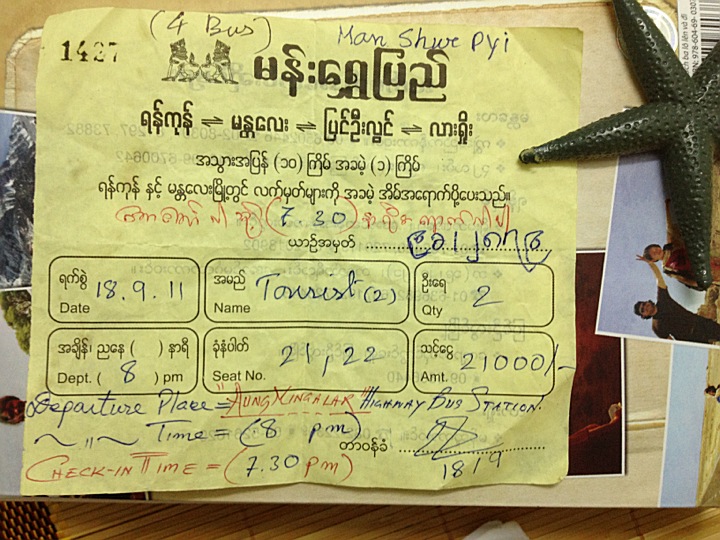 (4 Bus) Man Shwe Pyi
1427
မန်းရွှေပြည်
ရန်ကုန် ⇌ မန္တလေး ⇌ ပြင်ဦးလွင် ⇌ လားရှိုး
အသွားအပြန် (၁၀) ကြိမ် အခမဲ့ (၁) ကြိမ်
ရန်ကုန် နှင့် မန္တလေးမြို့တွင် လက်မှတ်များကို အခမဲ့ အိမ်အရောက်ပို့ပေးသည်။
(7.30)
ယာဉ်အမှတ်
ရက်စွဲ 18.9.11 Date
အမည် Tourist (2) Name
ဦးရေ 2 Qty
အချိန်၊ ညနေ ( ) နာရီ Dept. ( 8 ) pm
ခုံနံပါတ် 21, 22 Seat No.
သင့်ငွေ 21000/- Amt.
Departure Place = "AUNG MINGALAR" HIGHWAY BUS STATION.
~ 〃 ~ Time = (8 pm)
တာဝန်ခံ 18/9
CHECK-IN TIME = (7.30 pm)